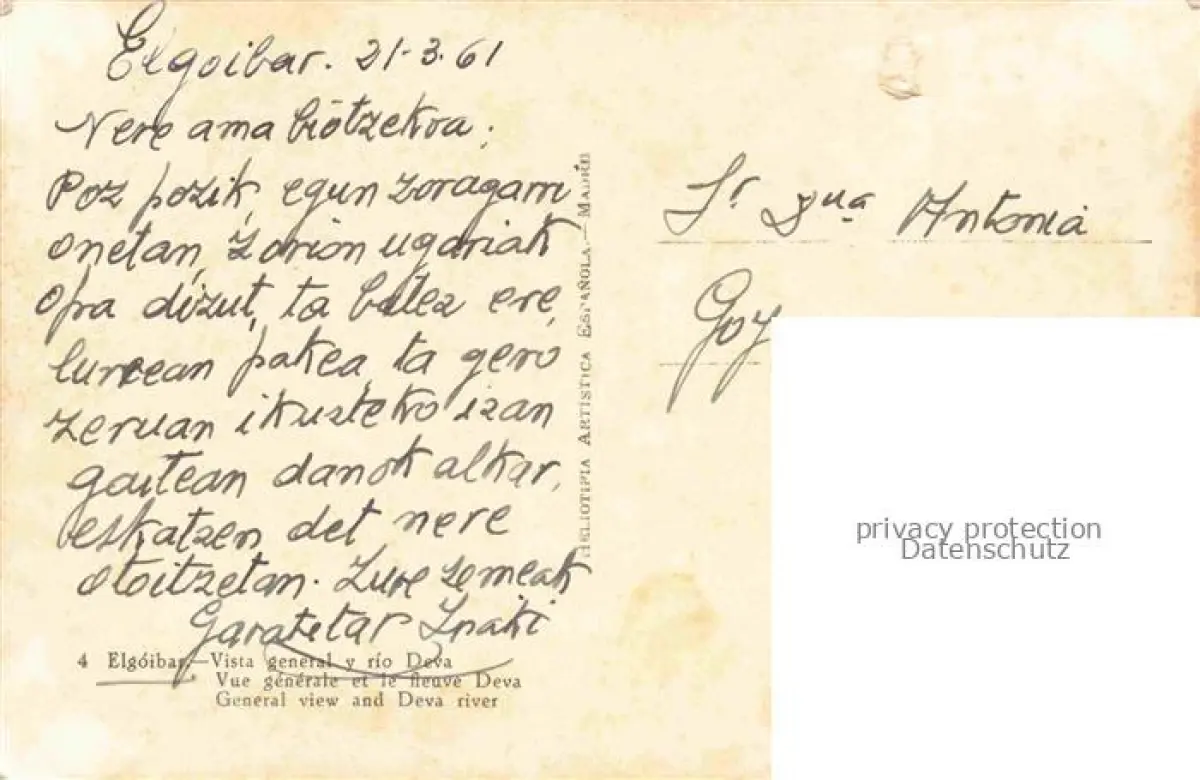 Elgoibar. 21-3-61
Nere ama biotzekoa;
Poz pozik, egun zoragarri
onetan, zorion ugariak
opa dizut, ta batez ere,
lurrean pakea, ta gero
zeruan ikusteko izan
gaitean danok alkar,
eskatzen det nere
otoitzetan. Zure semeak
Garatetar Inaki
4 Elgóibar.—Vista general y río Deva
Vue générale et le fleuve Deva
General view and Deva river
HELIOTIPIA ARTISTICA ESPAÑOLA.—MADRID
Antonia
Goy
privacy protection
Datenschutz